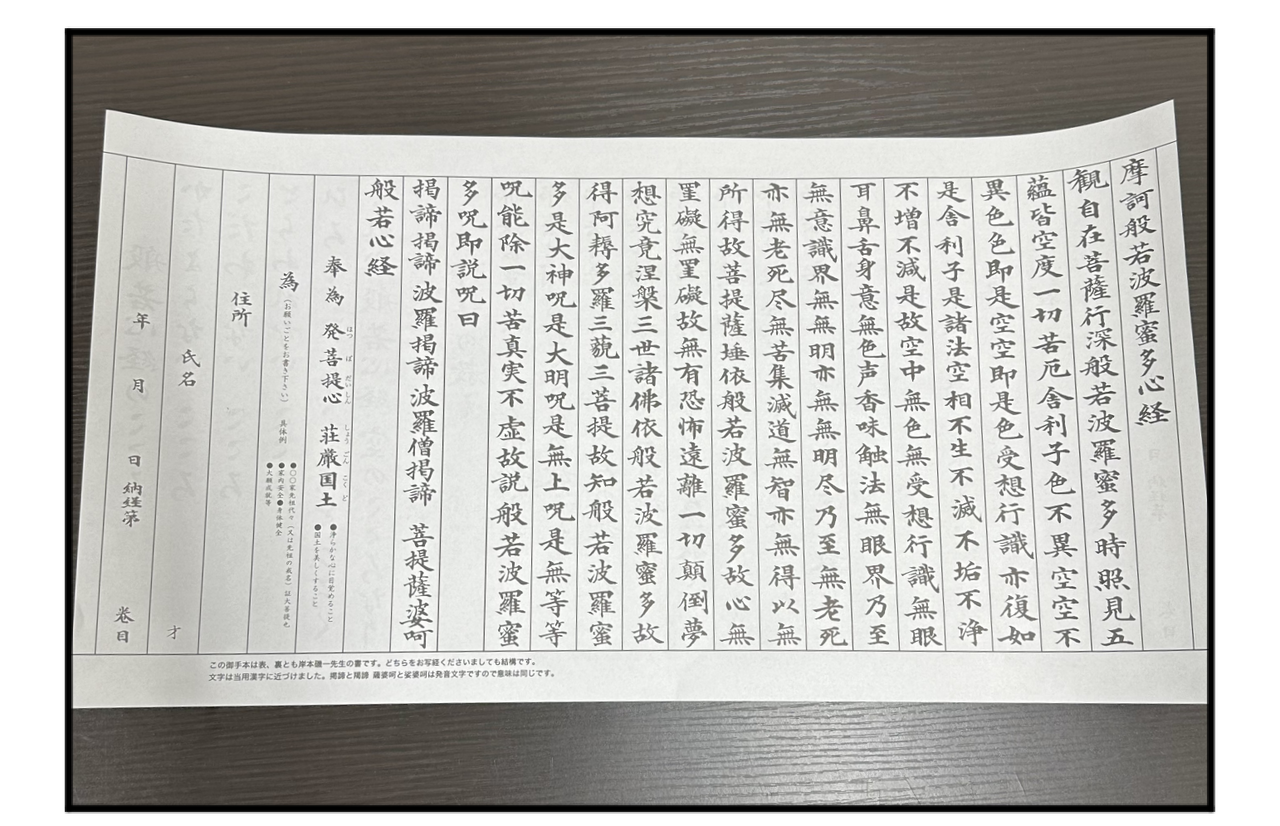 摩訶般若波羅蜜多心経
観自在菩薩行深般若波羅蜜多時照見五
蘊皆空度一切苦厄舎利子色不異空空不
異色色即是空空即是色受想行識亦復如
是舎利子是諸法空相不生不滅不垢不浄
不増不減是故空中無色無受想行識無眼
耳鼻舌身意無色声香味触法無眼界乃至
無意識界無無明亦無無明尽乃至無老死
亦無老死尽無苦集滅道無智亦無得以無
所得故菩提薩埵依般若波羅蜜多故心無
罣礙無罣礙故無有恐怖遠離一切顛倒夢
想究竟涅槃三世諸佛依般若波羅蜜多故
得阿耨多羅三藐三菩提故知般若波羅蜜
多是大神呪是大明呪是無上呪是無等等
呪能除一切苦真実不虚故説般若波羅蜜
多呪即説呪曰
掲諦掲諦波羅掲諦波羅僧掲諦 菩提薩婆呵
般若心経
奉為 発菩提心 荘厳国土
はつ ぼ だい しん しょう ごん こく ど
●浄らかな心に目覚めること
●国土を美しくすること
為(お願いごとをお書き下さい) 具体例
●〇〇家先祖代々(又は先祖の戒名)証大菩提也
●家内安全●身体健全
●大願成就等
住所
氏名 才
年 月 日 納経第 巻目
この御手本は表、裏とも岸本磯一先生の書です。どちらをお写経くださいましても結構です。
文字は当用漢字に近づけました。掲諦と羯諦 薩婆呵と娑婆呵は発音文字ですので意味は同じです。